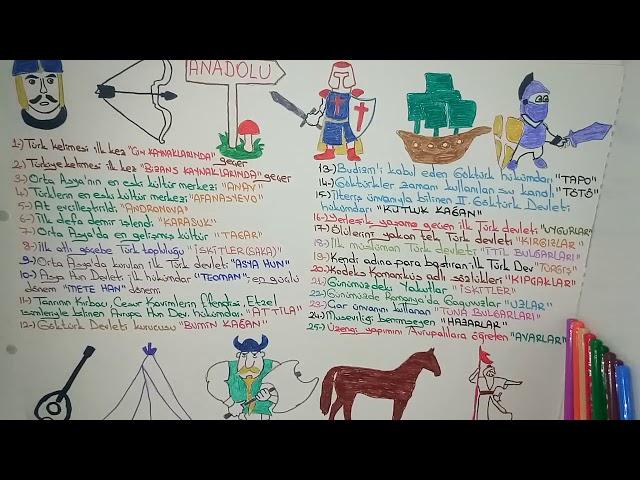 ANADOLU
1-) Türk kelimesi ilk kez "ÇİN KAYNAKLARINDA" geçer
2-) Türkiye kelimesi ilk kez "BİZANS KAYNAKLARINDA" geçer
3-) Orta Asya'nın en eski kültür merkezi "ANAV"
4-) Türklerin en eski kültür merkezi "AFANASYEVO"
5-) At evcilleştirildi "ANDRONOVA"
6-) İlk defa demir işlendi "KARASUK"
7-) Orta Asya'da en gelişmiş kültür "TAGAR"
8-) İlk atlı göçebe Türk topluluğu "İSKİTLER (SAKA)"
9-) Orta Asya'da kurulan ilk Türk devleti "ASYA HUN"
10-) Asya Hun Devleti ilk hükümdar "TEOMAN"; en güçlü
dönem "METE HAN" dönemi
11-) Tanrının Kırbacı, Cesur Kavimlerin Efendisi, Etzel
isimleriyle bilinen Avrupa Hun Dev. hükümdarı "ATTİLA"
12-) Göktürk Devleti kurucusu "BUMİN KAĞAN"
13-) Budizm'i kabul eden Göktürk hükümdarı "TAPO"
14-) Göktürkler zamanı kullanılan su kanalı "TÖTÖ"
15-) İlteriş ünvanıyla bilinen II. Göktürk Devleti
hükümdarı "KUTLUK KAĞAN"
16-) Yerleşik yaşama geçen ilk Türk devleti "UYGURLAR"
17-) Ölülerini yakan tek Türk devleti "KIRGIZLAR"
18-) İlk müslüman Türk devleti "İTİL BULGARLARI"
19-) Kendi adına para bastıran ilk Türk Dev "TÜRGİŞ"
20-) Kodeks Komanikus adlı sözlükleri "KIPÇAKLAR"
21-) Günümüzdeki Yakutlar "İSKİTLER"
22-) Günümüzde Romanya'da Gagavuzlar "UZLAR"
23-) Çar ünvanını kullanan "TUNA BULGARLARI"
24-) Museviliği benimseyen "HAZARLAR"
25-) Üzengi yapımını Avrupalılara öğreten "AVARLAR"